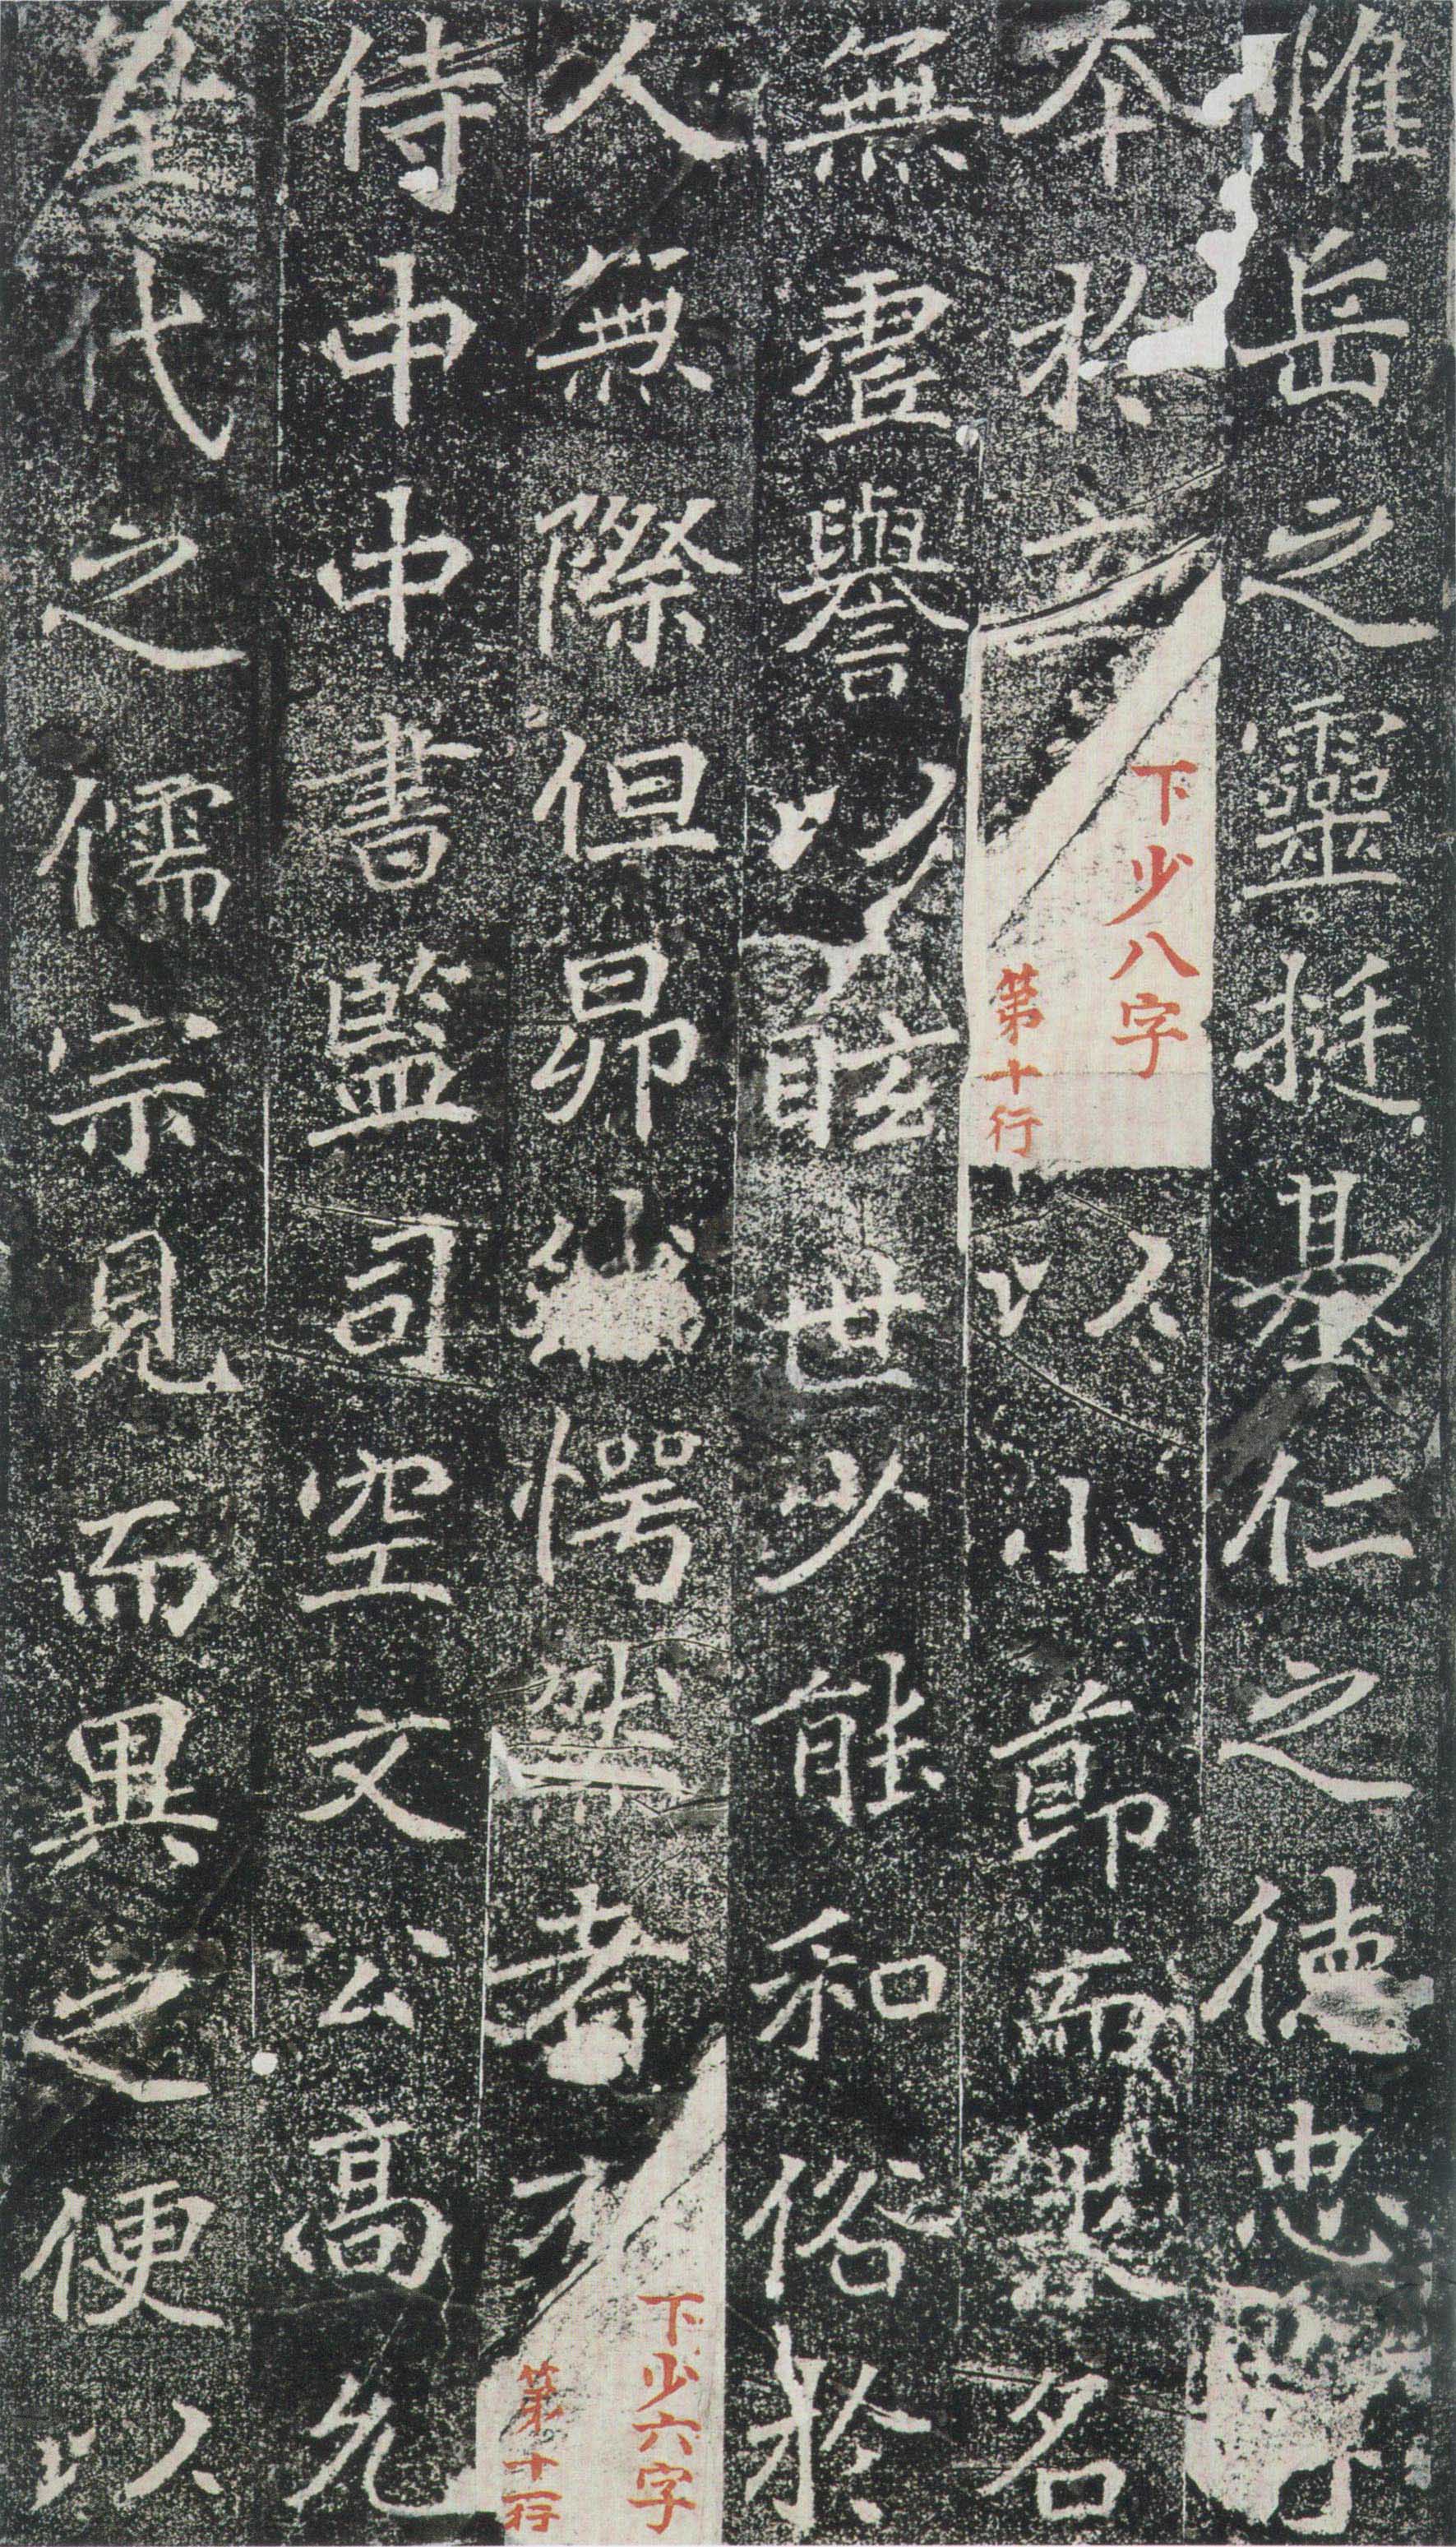 惟岳之靈挺基仁之德忠
本於立
下少八字
第十行
以小節而求名
無虛譽以眩世少能和俗於
人無際但昂
愕然者
下少六字
第十一行
侍中中書監司空文公高允
皇代之儒宗見而異之便以